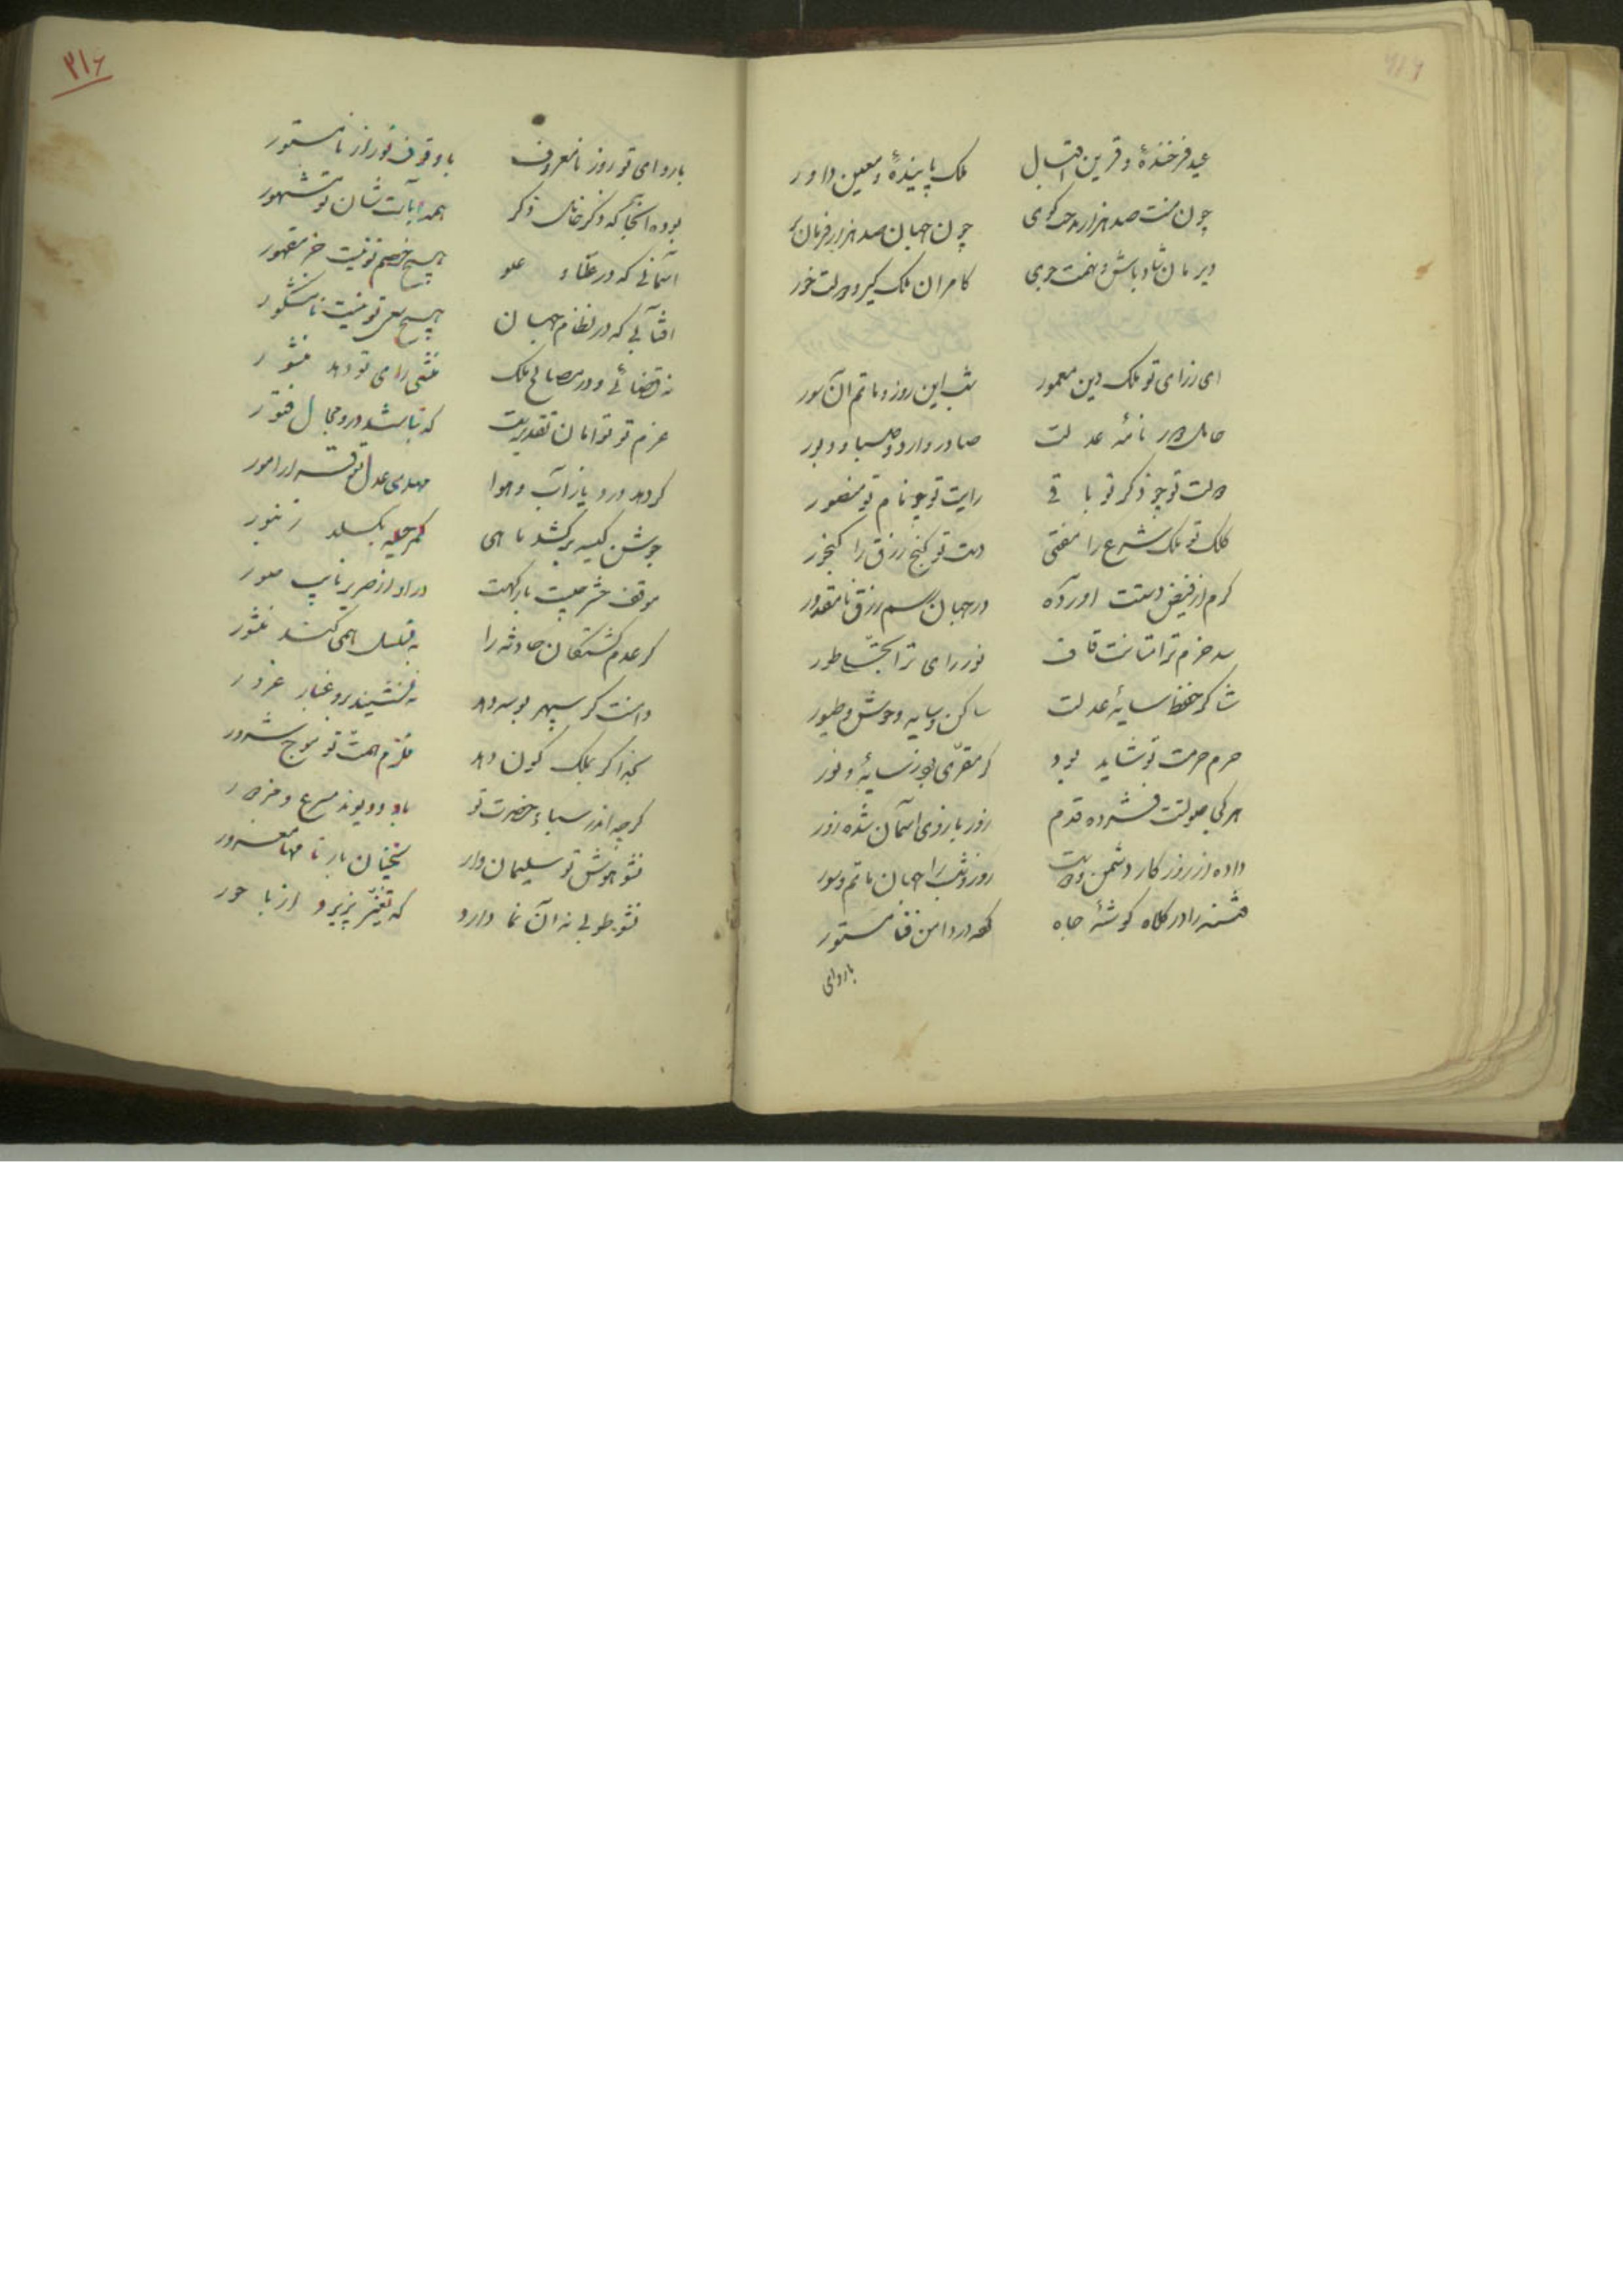 عید فرخنده و قرین اقبال ملک پاینده و معین داور
چون منت صد هزار مدحت گوی چون جهان صد هزار فرمان بر
دیر مان شاد باش و نهمت جوی کامران ملک گیر و دولت خور
ای ز رای تو ملک و دین معمور شب این روز و ماتم آن سور
حامل نامهٔ عدلت صادر و وارد و صبا و دبور
دولت تو چو ذکر تو باقی رایت تو چو نام تو منصور
کلک تو ملک شرع را مفتی دست تو گنج رزق را گنجور
کرم از فیض دستت آورده در جهان رسم رزق نامقدور
سد حزم ترا متانت قاف نور رای ترا تجلی طور
شاکر حفظ سایهٔ عدلت ساکن و سایه وحوش و طیور
حرم حرمت تو شاید بود کز مقری بود ز سایه و نور
هر کجا صولتت فشرده قدم زور بازوی آسمان شده زور
داده از روزگار دشمن و دوست روز و شب را جهان ماتم و سور
فتنه را در کلاه گوشهٔ جاه کرده در دامن فنا مستور
با روای
۳۱۶
با روای تو روز نامعروف با وقوف تو راز نامستور
بوده آنجا که ذکر حامل ذکر همه آیات شان تو مشهور
آسمانی که در عناد و علو هیچ خصم تو نیست جز مقهور
آفتابی که در نظام جهان هیچ سعی تو نیست نامشکور
نه قضائی و در مصالح ملک منشی رای تو دهد منشور
عزم تو توامان تقدیریست که نباشد درو مجال فتور
گر دهد در دیار آب و هوا مهدی عدل تو قرار امور
جوشن کینه برکشد ماهی کمر حمله بگسلد زنبور
موقف حشر چیست بارگهت در او از صریر نایب صور
گر عدم کشتگان حادثه را به تسلسل همی کند منشور
دامنت گر سپهر بوسه دهد نه نشیند برو غبار غرور
بخدا گر بملک کون دهد قلزم همت تو موج شرور
گرچه اندر سباء حضرت تو باد و دیوند مسرع و مزدور
نشو خوش تو سلیمان وار بچنان بار نامها مغرور
نشو طوبی نه آن نما دارد که تغیر پذیرد از باحور